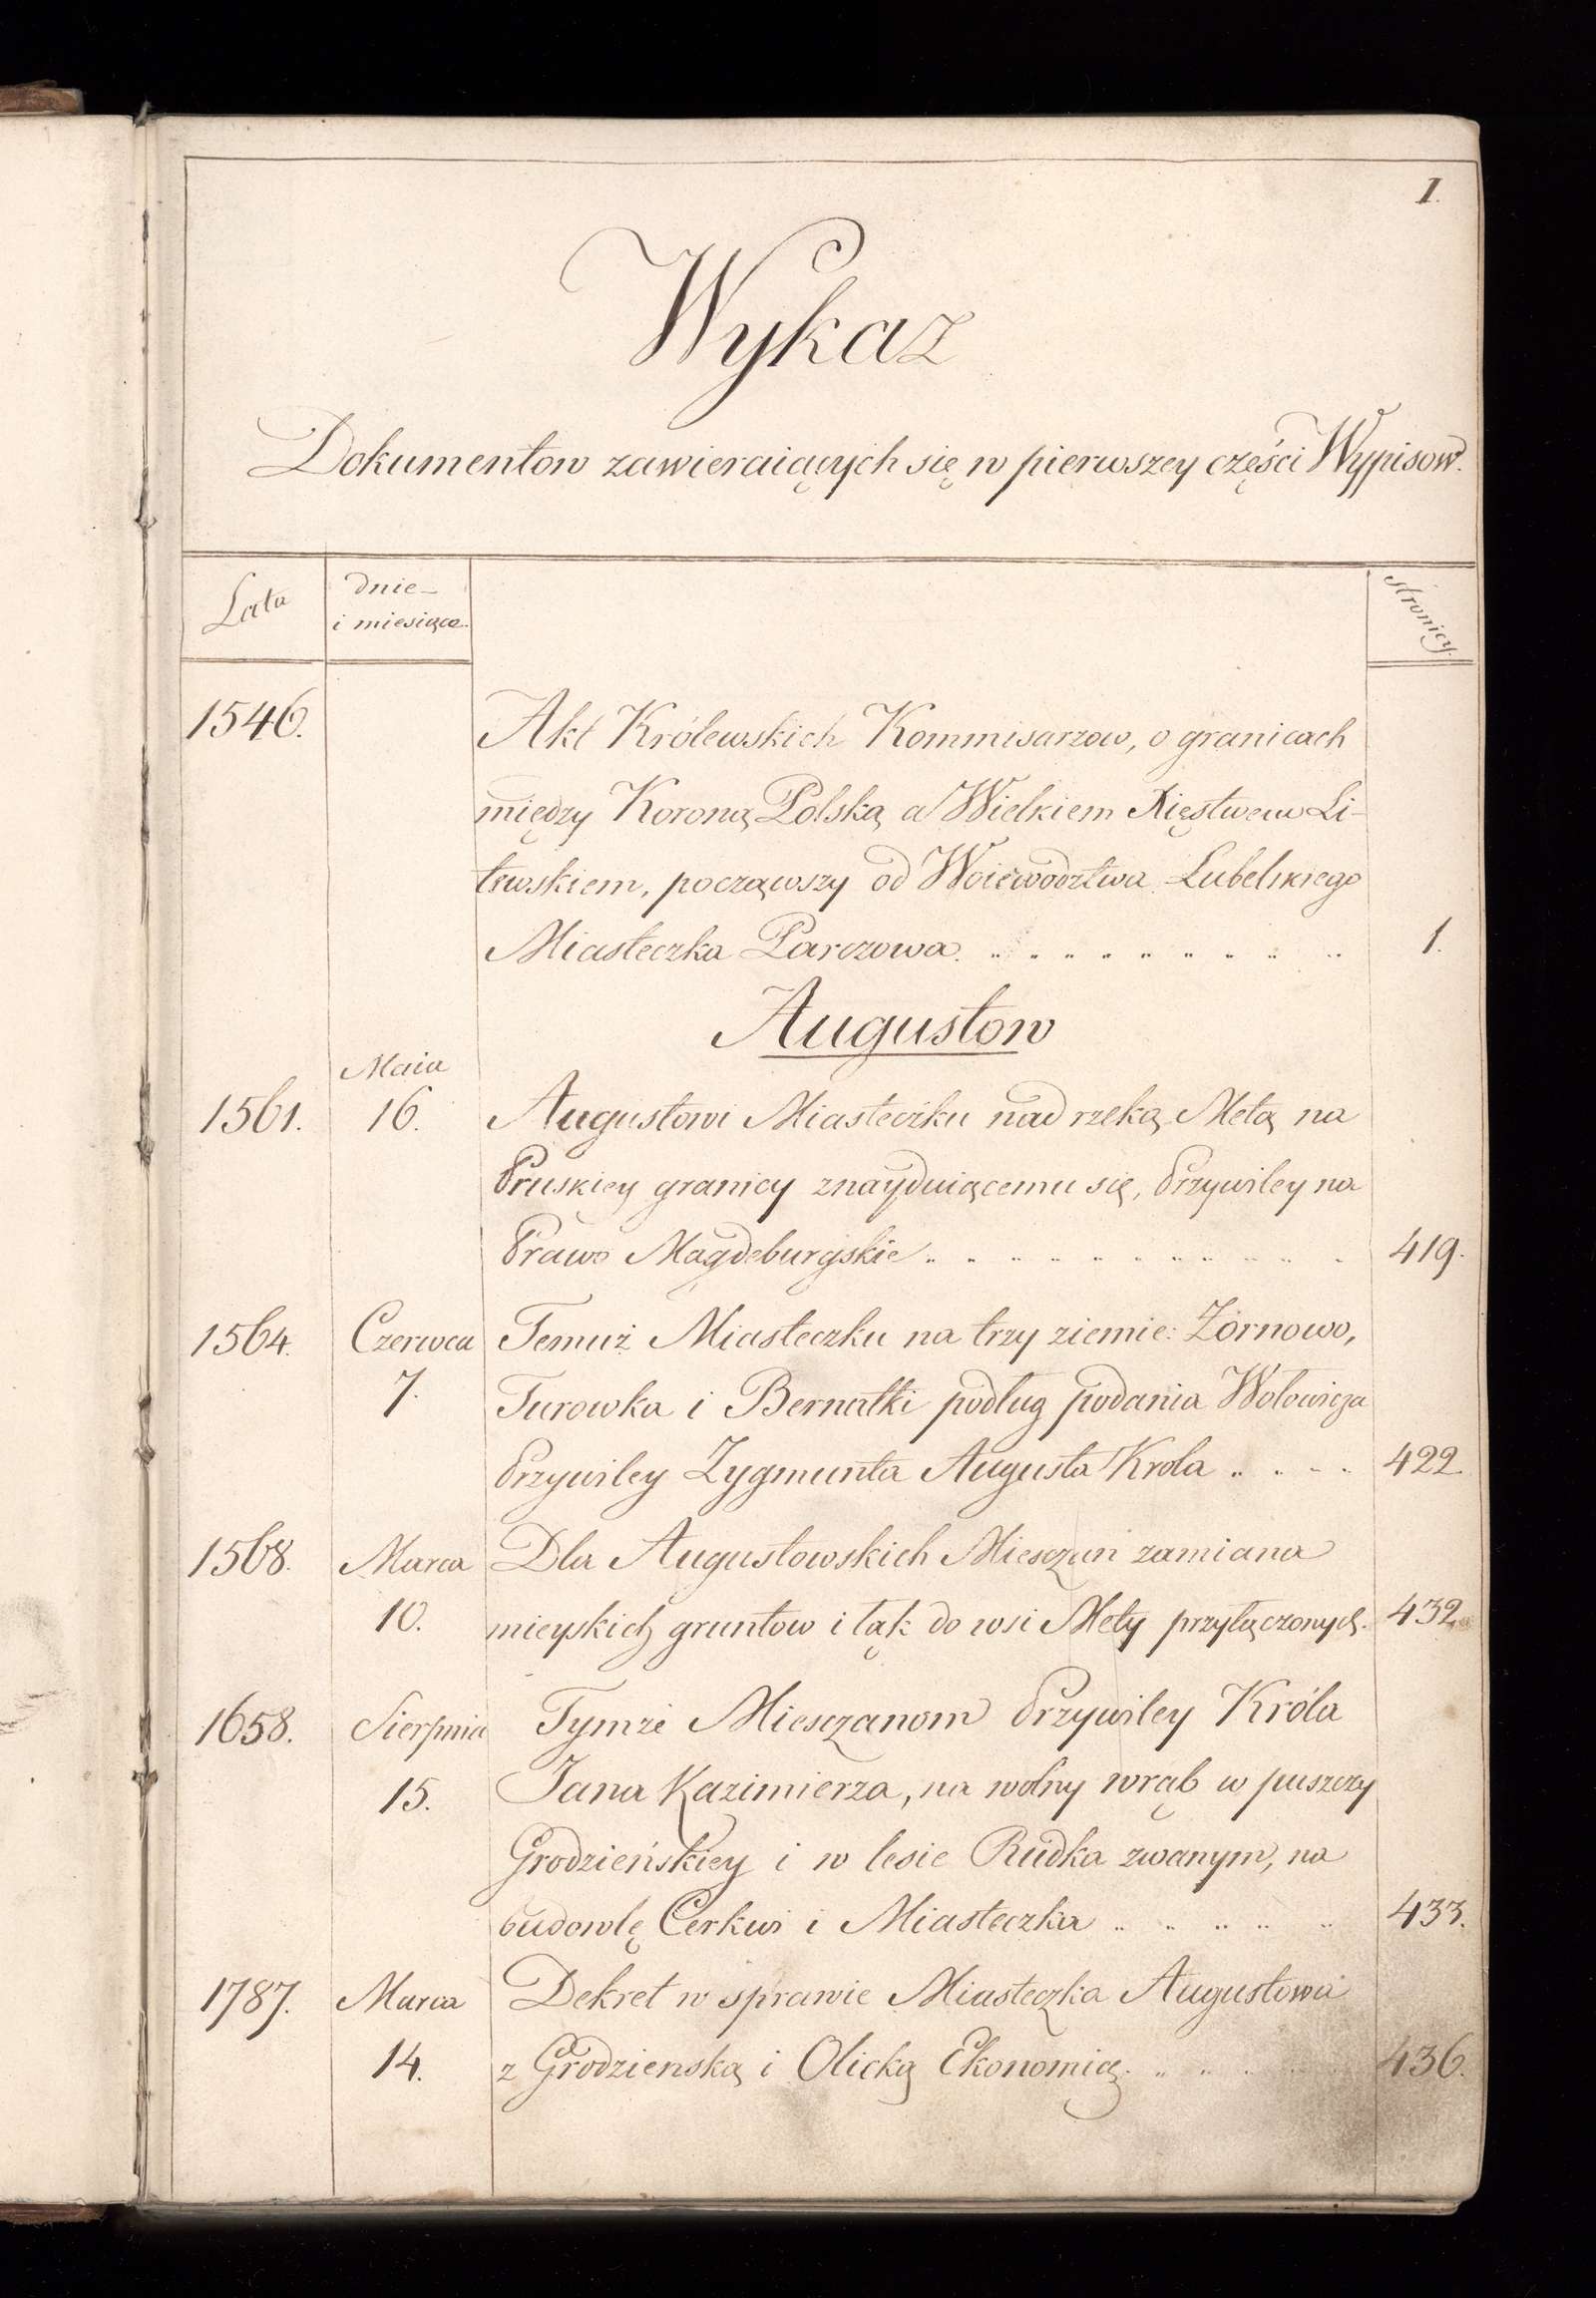 1.
Wykaz
Dokumentow zawieraiących się w pierwszey części Wypisow.
Lata
dnie
i miesiące
stronicy
1546.
Akt Królewskich Kommisarzow, o granicach
między Koroną Polską a Wielkiem Xięstwem Li-
tewskiem, począwszy od Woiewodztwa Lubelskiego
Miasteczka Parczowa. 1.
Augustow
1561. Maia 16.
Augustowi Miasteczku nad rzeką Metą na
Pruskiey granicy znayduiącemu się, Przywiley na
Prawo Magdeburgskie 419.
1564. Czerwca 7.
Temuż Miasteczku na trzy ziemie: Żórnowo,
Turowka i Bernatki podług podania Wołowicza
Przywiley Zygmunta Augusta Krola 422.
1568. Marca 10.
Dla Augustowskich Miesczan zamiana
mieyskich gruntow i łąk do wsi Mety przyłączonych. 432.
1658. Sierpnia 15.
Tymże Miesczanom Przywiley Króla
Jana Kazimierza, na wolny wrąb w puszczy
Grodzieńskiey i w lesie Rudka zwanym, na
budowlę Cerkwi i Miasteczka 433.
1787. Marca 14.
Dekret w sprawie Miasteczka Augustowa
z Grodzienską i Olicką Ekonomią. 436.